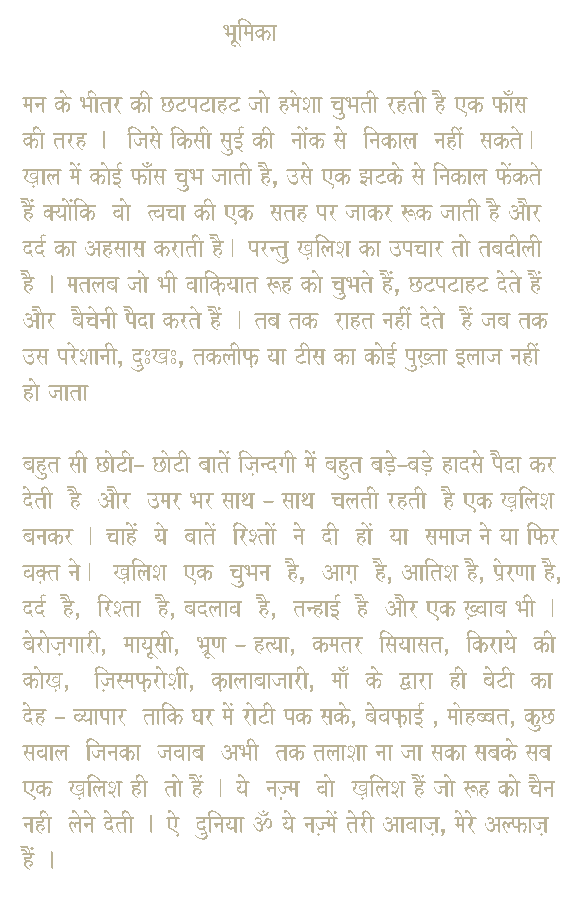 भूमिका
मन के भीतर की छटपटाहट जो हमेशा चुभती रहती है एक फाँस
की तरह । जिसे किसी सुई की नोंक से निकाल नहीं सकते।
ख़ाल में कोई फाँस चुभ जाती है, उसे एक झटके से निकाल फेंकते
हैं क्योंकि वो त्वचा की एक सतह पर जाकर रूक जाती है और
दर्द का अहसास कराती है। परन्तु ख़लिश का उपचार तो तबदीली
है । मतलब जो भी वाक़ियात रूह को चुभते हैं, छटपटाहट देते हैं
और बैचेनी पैदा करते हैं । तब तक राहत नहीं देते हैं जब तक
उस परेशानी, दुःखः, तकलीफ़ या टीस का कोई पुख़्ता इलाज नहीं
हो जाता
बहुत सी छोटी– छोटी बातें ज़िन्दगी में बहुत बड़े–बड़े हादसे पैदा कर
देती है और उमर भर साथ – साथ चलती रहती है एक ख़लिश
बनकर । चाहें ये बातें रिश्तों ने दी हों या समाज ने या फिर
वक़्त ने। ख़लिश एक चुभन है, आग़ है, आतिश है, प्रेरणा है,
दर्द है, रिश्ता है, बदलाव है, तन्हाई है और एक ख़्वाब भी ।
बेरोज़गारी, मायूसी, भ्रूण – हत्या, कमतर सियासत, किराये की
कोख़, ज़िस्मफ़रोशी, क़ालाबाजारी, माँ के द्वारा ही बेटी का
देह – व्यापार ताकि घर में रोटी पक सके, बेवफ़ाई , मोहब्बत, कुछ
सवाल जिनका जवाब अभी तक तलाशा ना जा सका सबके सब
एक ख़लिश ही तो हैं । ये नज़्म वो ख़लिश हैं जो रूह को चैन
नही लेने देती । ऐ दुनिया ॐ ये नज़्में तेरी आवाज़, मेरे अल्फाज़
हैं ।